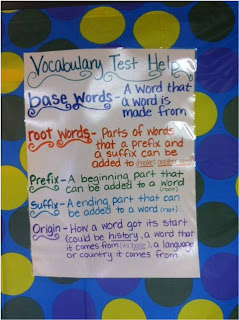 Vocabulary Test Help
base words - A word that
a word is
made from
root words - Parts of words
that a prefix and
a suffix can be
added to
Prefix - A beginning part that
can be added to a word
(root)
Suffix - A ending part that can
be added to a word (root)
Origin - How a word got its start
(could be history, a word that
it comes from, a language
or country it comes from